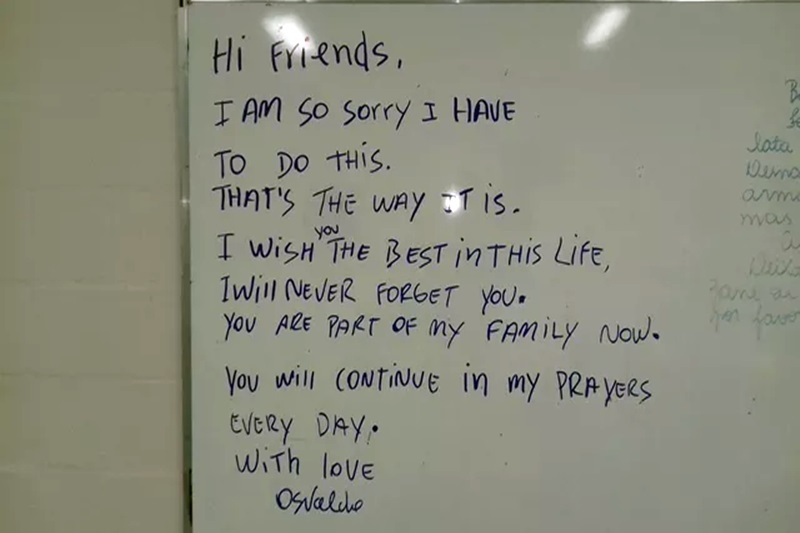 Hi Friends,
I AM SO SORRY I HAVE
TO DO THIS.
THAT'S THE WAY IT IS.
I WISH you THE BEST in THIS LIFE,
I Will NEVER FORGET YOU.
YOU ARE PART OF MY FAMILY NOW.
YOU Will CONTINUE in MY PRAYERS
EVERY DAY.
WITH LOVE
Osvaldo
lata
mas